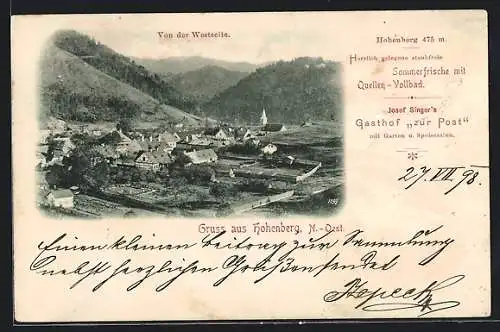 Von der Westseite.
Hohenberg 475 m.
Herrlich gelegene staubfreie
Sommerfrische mit
Quellen-Vollbad.
Josef Singer's
Gasthof „zur Post"
mit Garten u. Speisesalon.
27. VII. 98.
1197
Gruss aus Hohenberg, N.-Oest.
Einen kleinen Beitrag zur Sammlung
nebst herzlichen Grüßen sendet